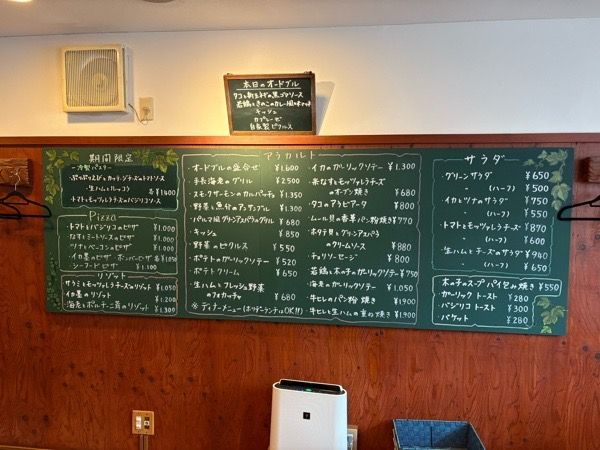 本日のオードブル
タコと新玉ネギの黒ゴマソース
若鶏ときのこのカレー風味マリネ
キッシュ
カプレーゼ
自家製ピクルス
期間限定
冷製パスタ
トマトとモッツァレラのバジリコソース
各¥1400
Pizza
・トマトとバジリコのピザ ¥1.000
・なすとミートソースのピザ ¥1.000
・ツナとベーコンのピザ ¥1.000
・シーフードピザ ¥1.100
リゾット
サラミとモッツァレラチーズのリゾット ¥1.150
イカ墨のリゾット ¥1.200
海老とポルチーニ茸のリゾット ¥1.300
アラカルト
・オードブルの盛合せ ¥1.600
・手長海老のグリル ¥2.500
・スモークサーモンのカルパッチョ ¥1.350
・野菜と魚介のアンサンブル ¥1.300
・パルマ風グリーンアスパラのグリル ¥680
・キッシュ ¥850
・野菜のピクルス ¥550
・ポテトのガーリックソテー ¥520
・ポテトクリーム ¥650
・生ハムとフレッシュ野菜
のフォカッチャ ¥680
※ディナーメニュー(ホリデーランチはOK!!)
・イカのガーリックソテー ¥1.300
・米なすとモッツァレラチーズ
のオーブン焼き ¥680
・タコのアラビアータ ¥800
・ムール貝の香草パン粉焼き ¥770
・ホタテ貝とグリーンアスパラ
のクリームソース ¥880
・チョリソーセージ ¥800
・若鶏と木の子のガーリックソテー ¥750
・海老のガーリックソテー ¥1.050
・牛ヒレのパン粉焼き ¥1.900
・牛ヒレと生ハムの重ね焼き ¥1.900
サラダ
・グリーンサラダ ¥650
〃 (ハーフ) ¥500
・イカとツナのサラダ ¥750
〃 (ハーフ) ¥550
・トマトとモッツァレラチーズ ¥870
〃 (ハーフ) ¥600
・生ハムとチーズのサラダ ¥940
〃 (ハーフ) ¥650
木の子のスープ パイ包み焼き ¥550
・ガーリックトースト ¥280
・バジリコトースト ¥300
・バケット ¥280